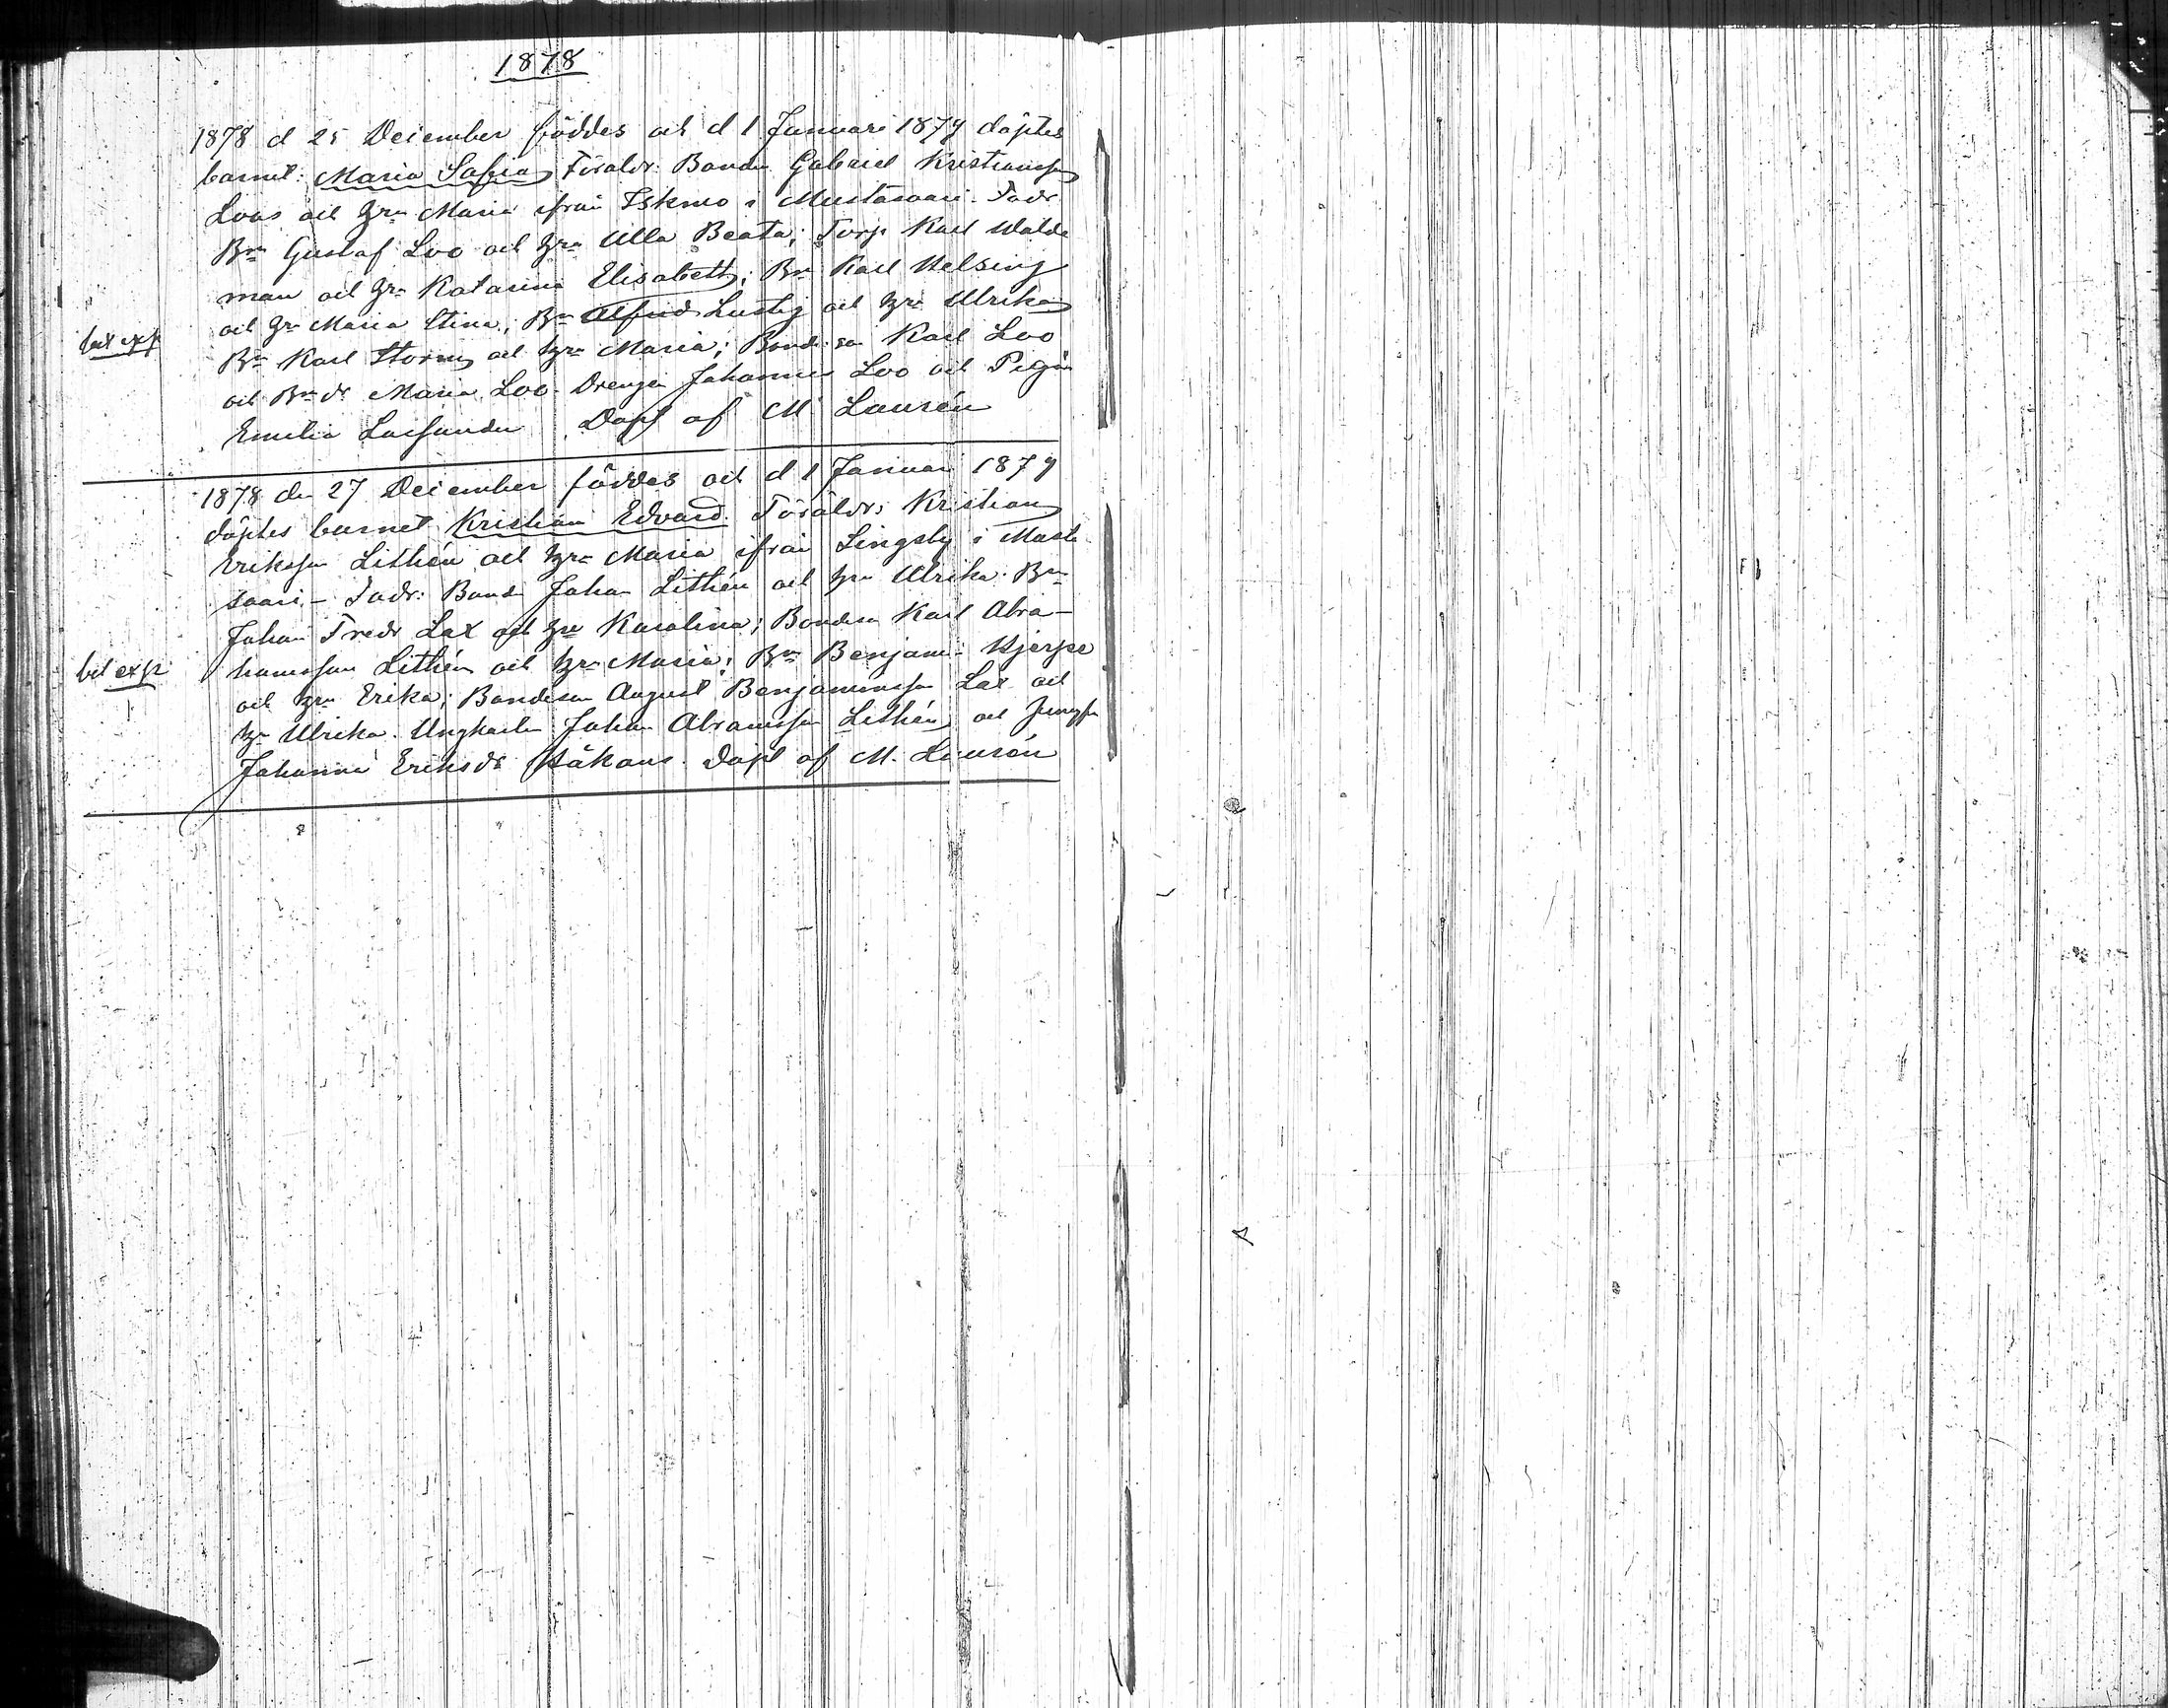 1878
1878 d 25 December föddes och d 1 Januari 1879 döptes
barnet: Maria Sofia Föräldr: Bonden Gabriel Kristiansson
Loos och hru Maria ifrån Iskmo i Mustasaari. Fadr.
Bn Gustaf Loo och hru Ulla Beata; Torp Karl Walde
man och hru Katarina Elisabeth; Bn Karl Helsing
och hru Maria Stina; Bn Alfrid Lustig och hru Ulrika
bet exp
Bn Karl Storm och hru Maria; Bondeson Karl Loo
och Bndr Maria Loo. Drengen Johannes Loo och Pigan
Emilia Dopt af M. Laurén
1878 den 27 December föddes och d 1 Januari 1879
döptes barnet Kristian Edvard. Föräldr: Kristian
Eriksson Lithén och hru Maria ifrån Singsby i Musta
saari. - Fadr: Bond Johan Lithén och hru Ulrika. Bn
Johan Fredr Lax och hru Karolina; Bonden Karl Abra-
bet exp
hamsson Lithén och hru Maria; Bn Benjamin Hjerpe
och hru Erika; Bondeson August Benjaminsson Lax och
hr Ulrika. Ungkarlen Johan Abramsson Lithén och Jungfr
Johanna Eriksdr Håkans. Döpt af M. Laurén